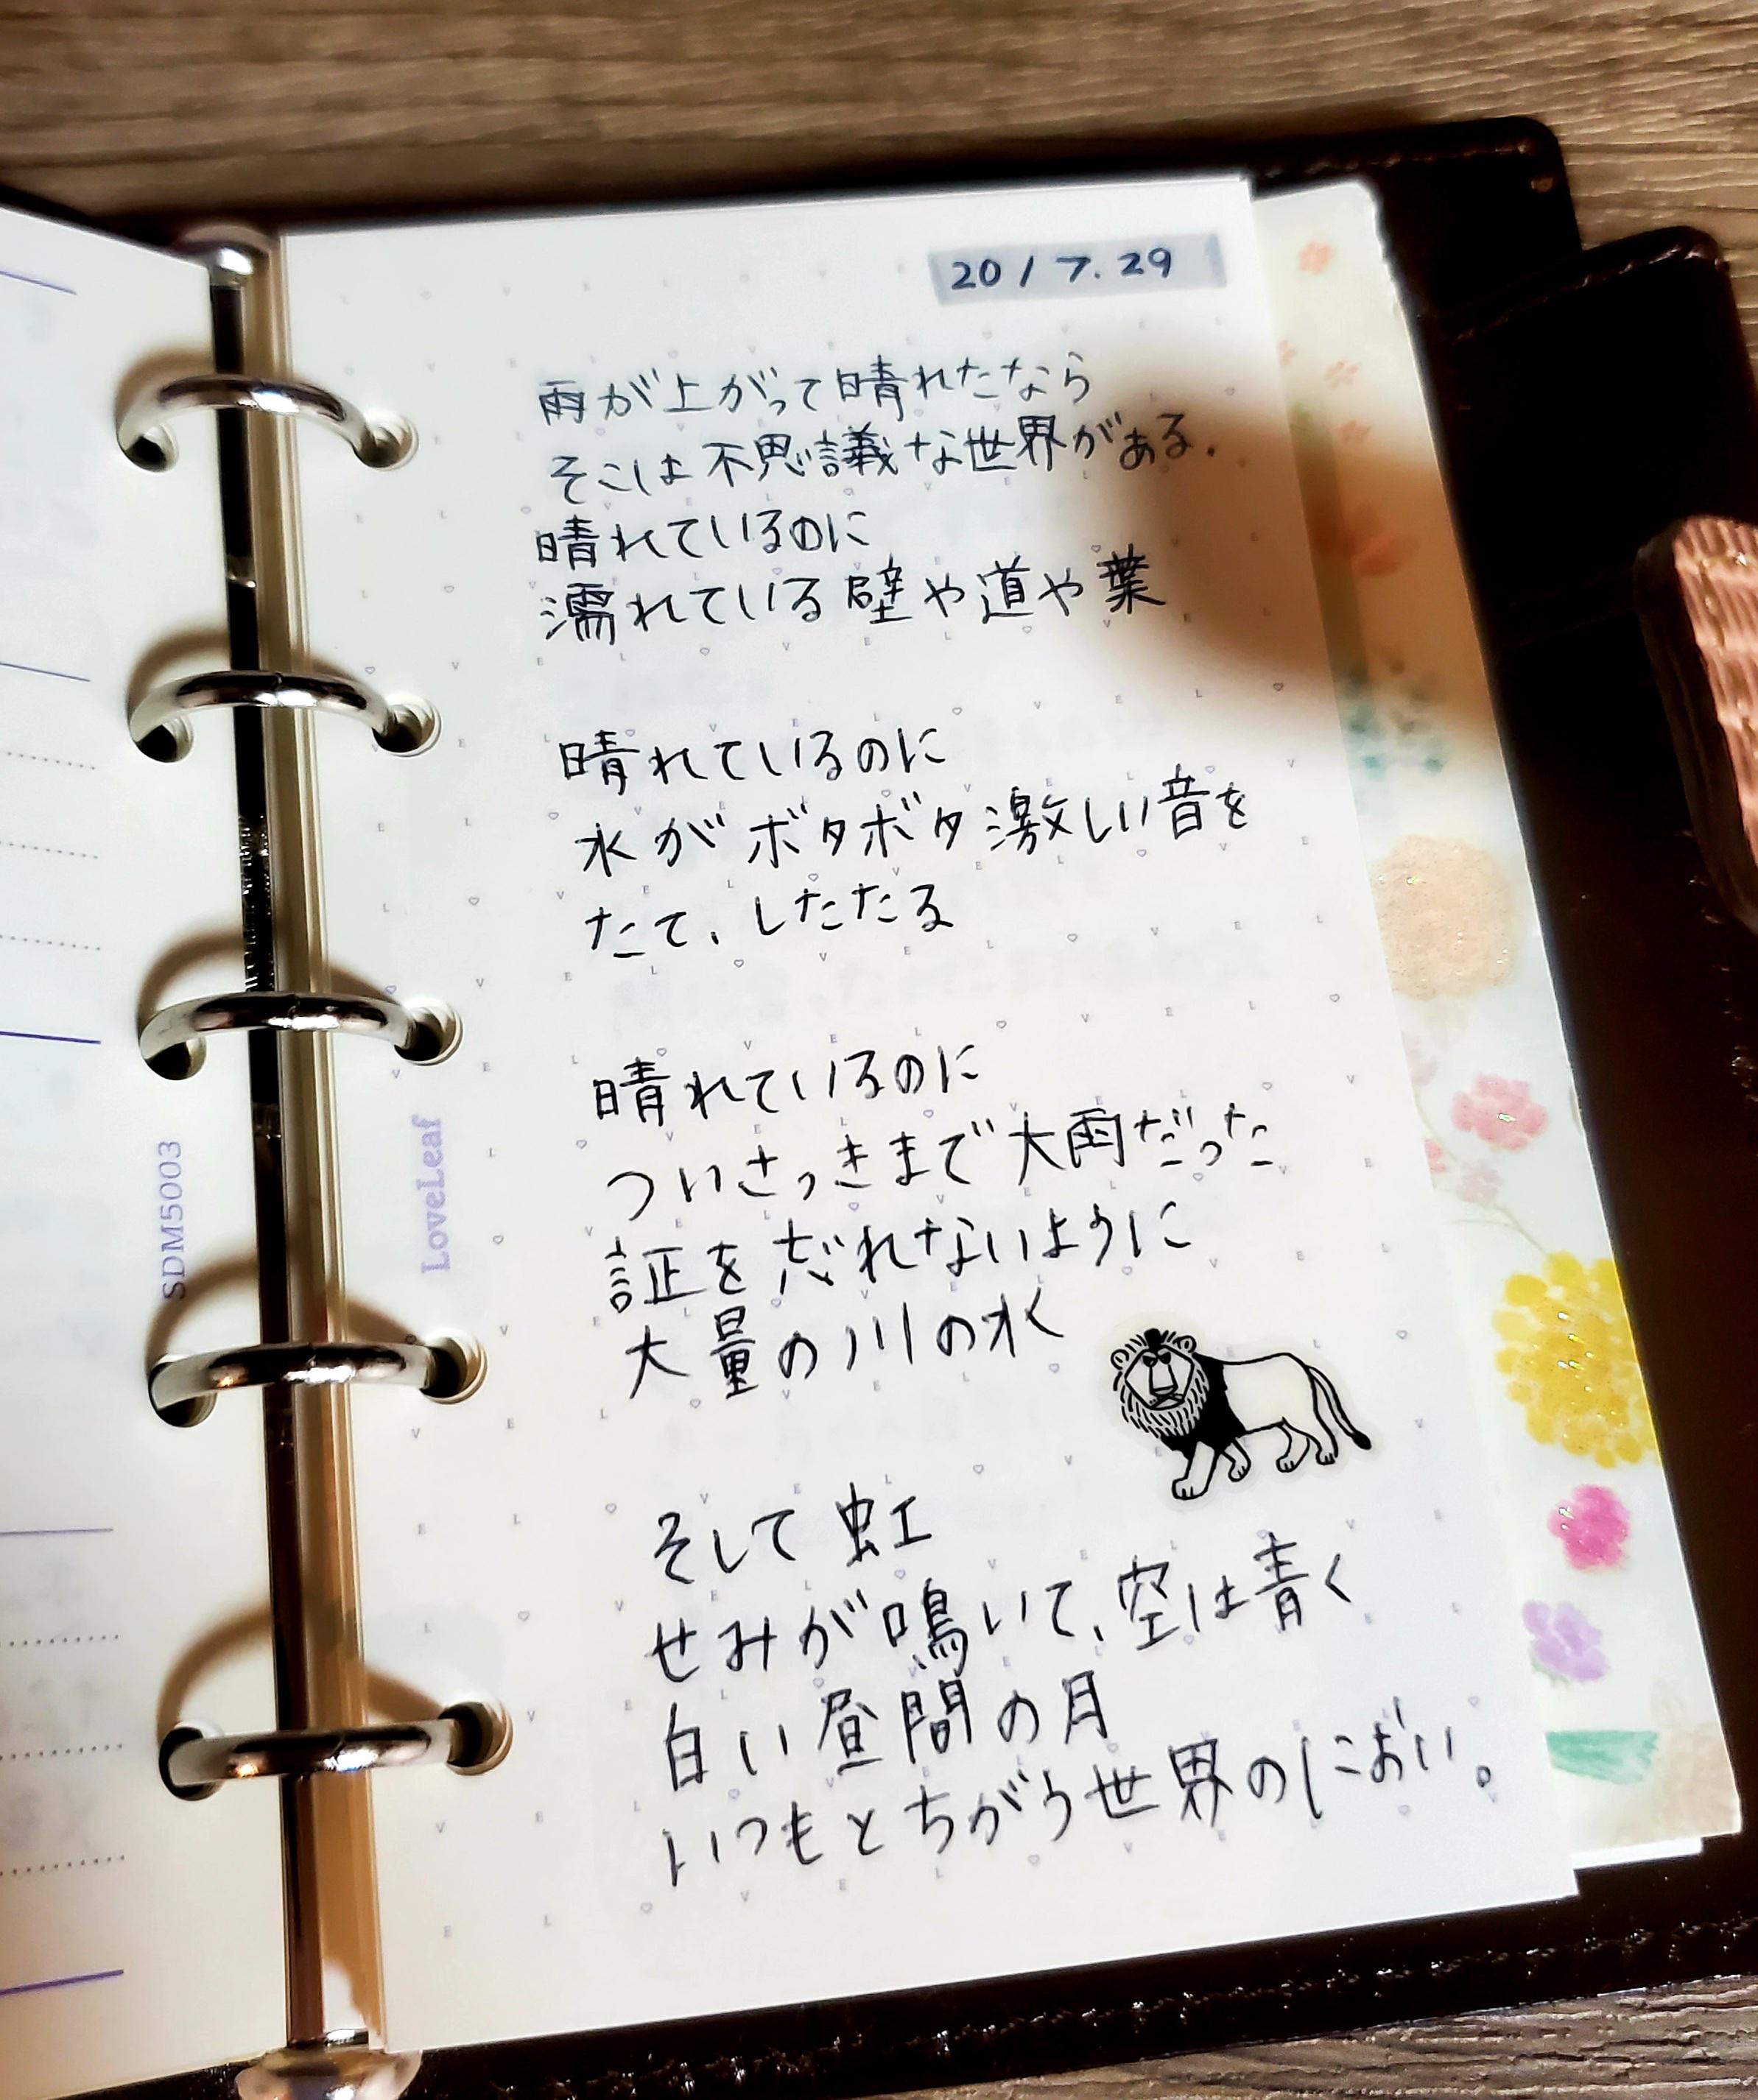 20/7.29
雨が上がって晴れたなら
そこは不思議な世界がある.
晴れているのに
濡れている壁や道や葉
晴れているのに
水がボタボタ激しい音を
たて、したたる
晴れているのに
ついさっきまで大雨だった
証を忘れないように
大量の川の水
そして虹
せみが鳴いて、空は青く
白い昼間の月
いつもとちがう世界のにおい。
SDM5003
LoveLeaf